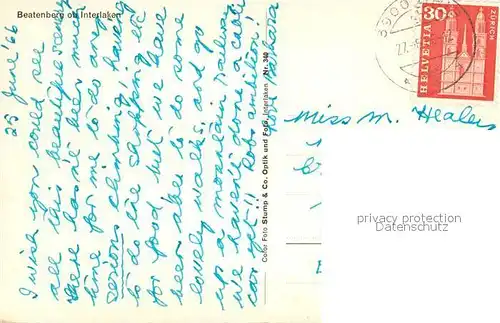 Beatenberg ob Interlaken
25 June '66
I wish you could see
all this beautiful scenery
there hasn't been much
time for me to do any
serious climbing! having
to do the shopping etc
for food but we have
been able to do some
lovely walks. and go
up a mountain railway
we haven't done a cable
car yet!! Rob's ambition!
Color Foto Stump & Co. Optik und Foto, Interlaken Nr. 340
HELVETIA
30
ZÜRICH
Miss M. Healers
privacy protection
Datenschutz